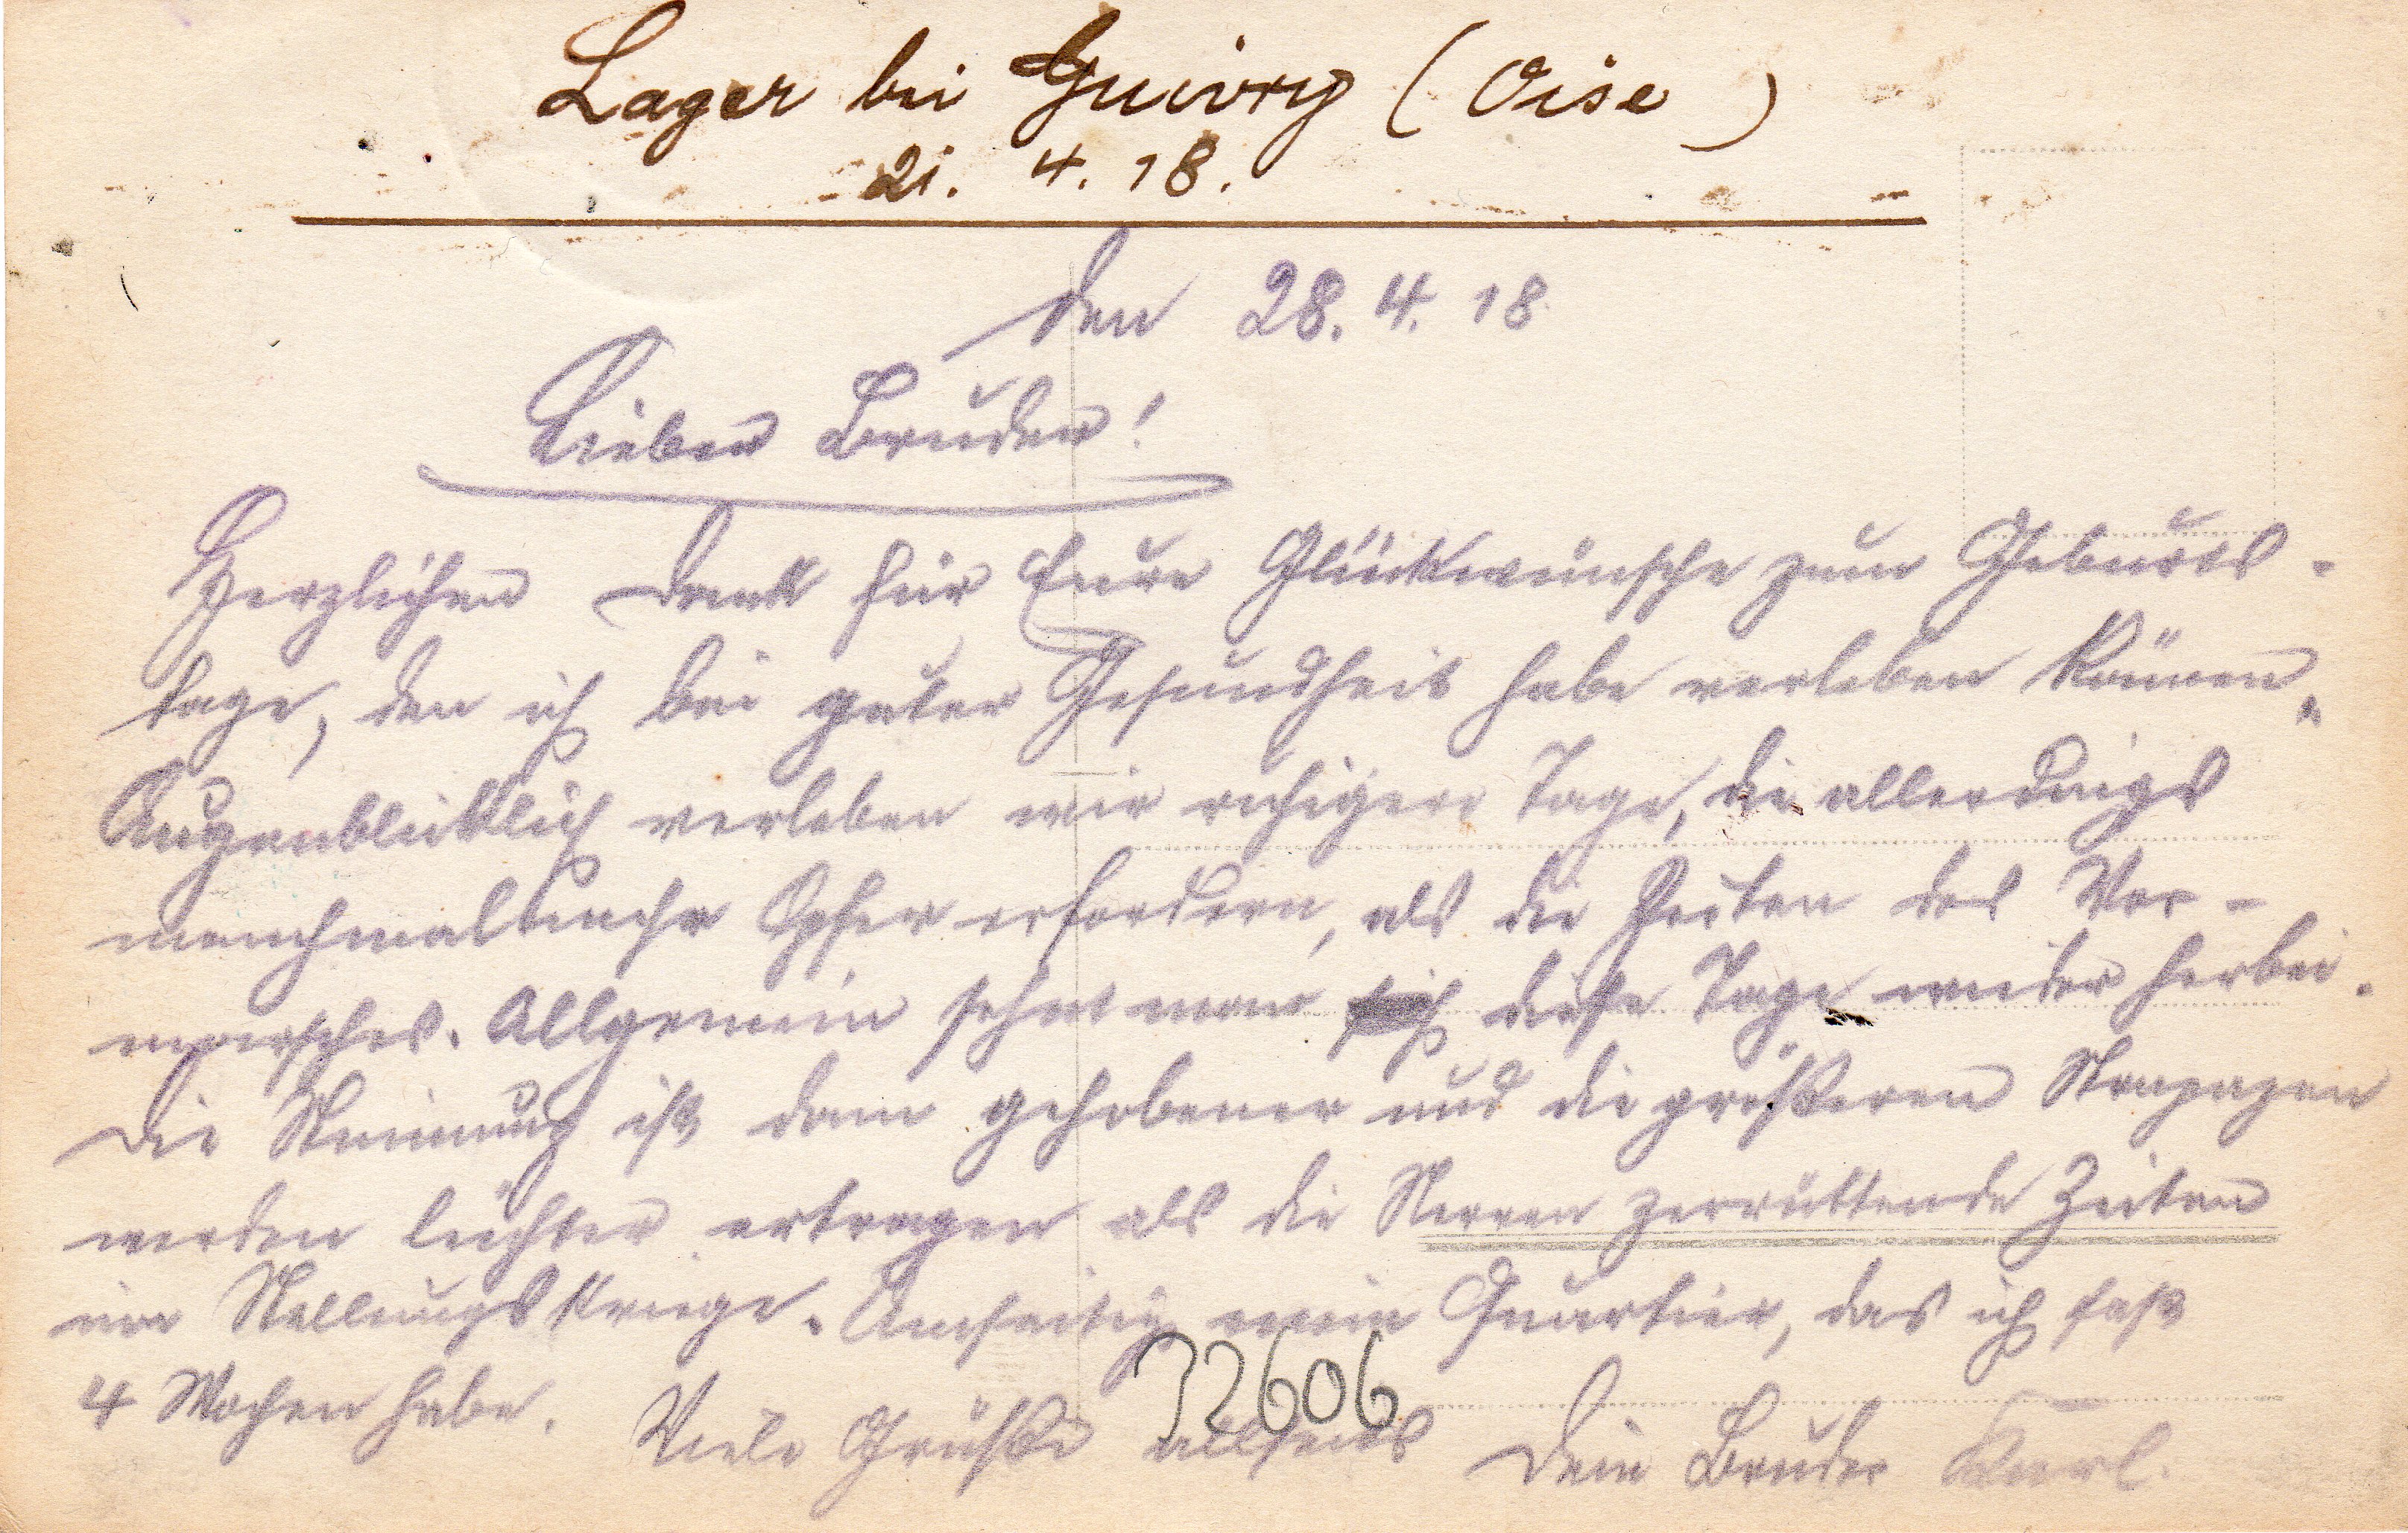 Lager bei Guivry (Oise)
21. 4. 18.
den 28. 4. 18
Lieber Bruder!
Herzlichen Dank für Eure Glückwünsche zum Geburts-
tage, den ich bei guter Gesundheit habe verleben können.
Augenblicklich verleben wir ruhigere Tage, die allerdings
manchmal mehr Opfer erfordern, als die Zeiten des Vor-
marsches. Allgemein sehnt man sich diese Tage wieder herbei.
Die Stimmung ist dann gehobener und die größeren Strapazen
werden leichter ertragen als die Nerven zerrüttende Zeiten
im Stellungskriege. Umseitig mein Quartier, das ich fast
4 Wochen habe. Viele Grüße allseits Dein Bruder Karl.
32606